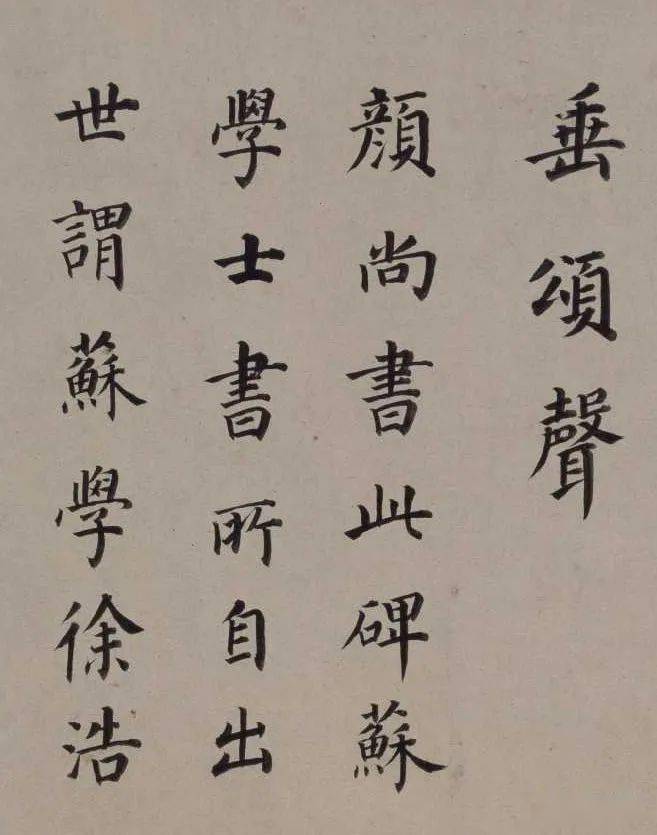 垂頌聲
顔尚書此碑蘇
學士書所自出
世謂蘇學徐浩